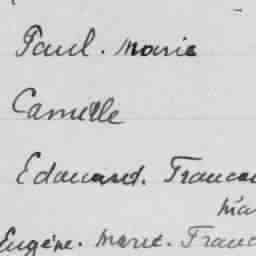 Paul. Marie
Camille
Edouard. Francoi
Ma
Eugène. Marie. Franc